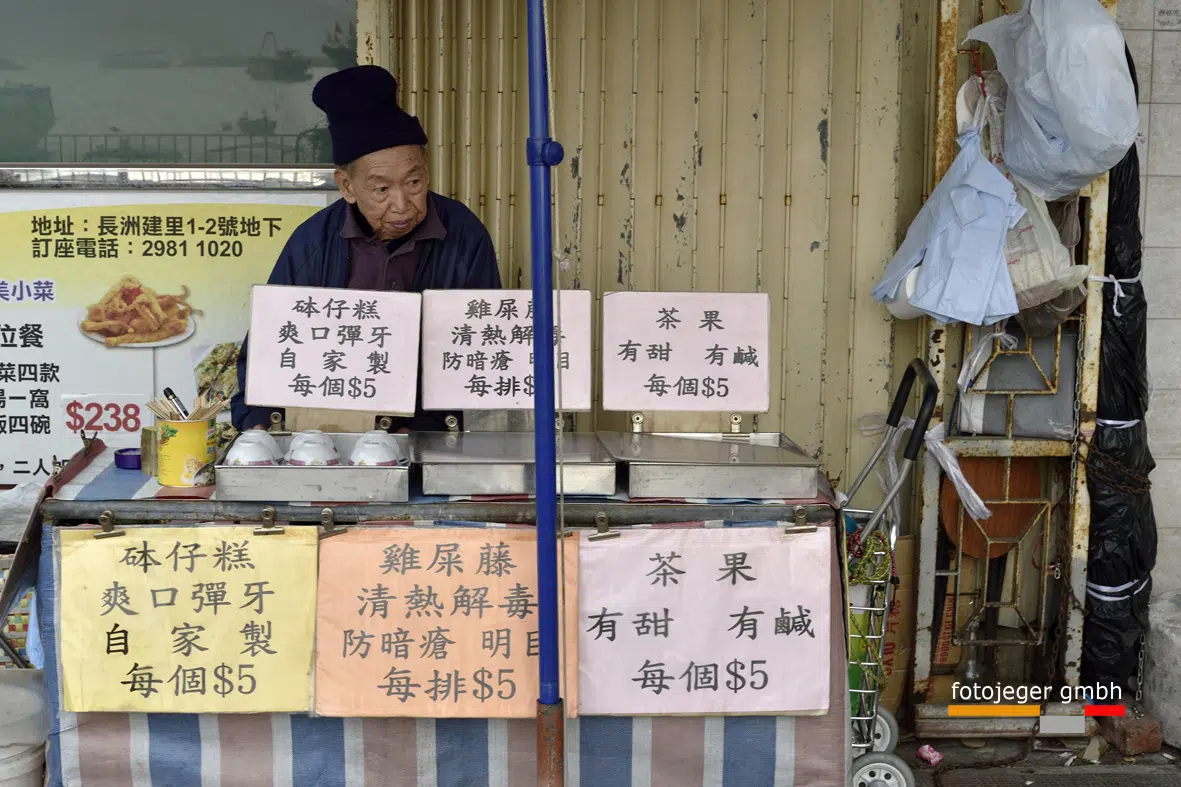 地址：長洲建里1-2號地下
訂座電話：2981 1020
美小菜
位餐
菜四款
湯一窩
飯四碗
$238
，二人
砵仔糕
爽口彈牙
自 家 製
每個$5
雞屎藤
清熱解毒
防暗瘡 明目
每排$5
茶 果
有甜 有鹹
每個$5
砵仔糕
爽口彈牙
自 家 製
每個$5
雞屎藤
清熱解毒
防暗瘡 明目
每排$5
茶 果
有甜 有鹹
每個$5
fotojeger gmbh